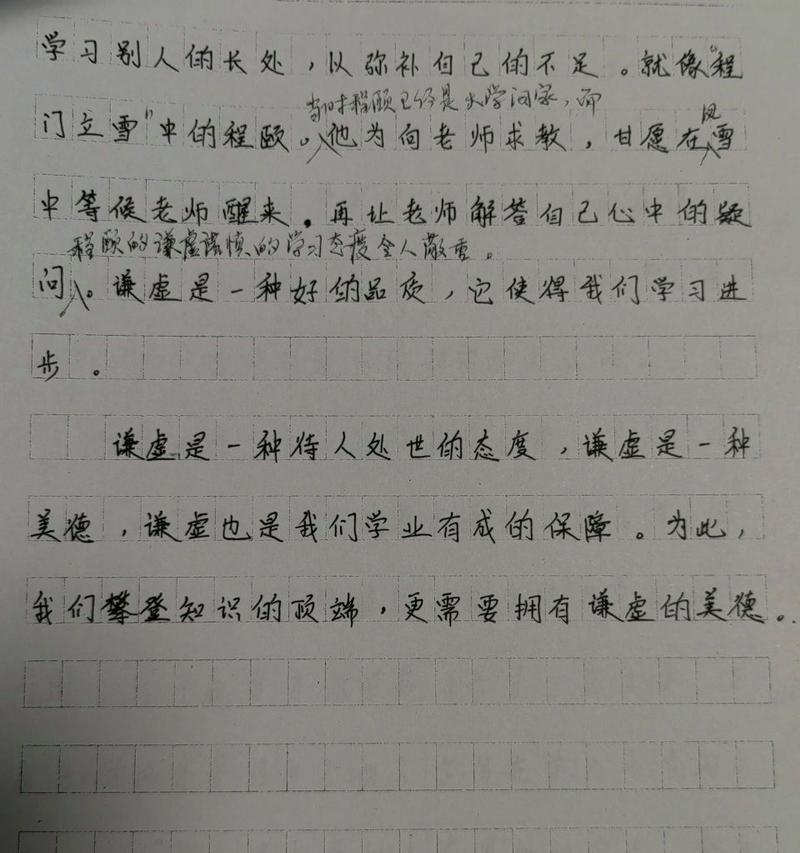 学习别人的长处，以弥补自己的不足。就像“程
当时程颐已经是大学问家，而
门立雪”中的程颐。他为向老师求教，甘愿在雪
风
中等候老师醒来。再让老师解答自己心中的疑
程颐的谦虚谨慎的学习态度令人敬重。
问。谦虚是一种好的品质，它使得我们学习进
步。
谦虚是一种待人处世的态度，谦虚是一种
美德，谦虚也是我们学业有成的保障。为此，
我们攀登知识的顶端，更需要拥有谦虚的美德。